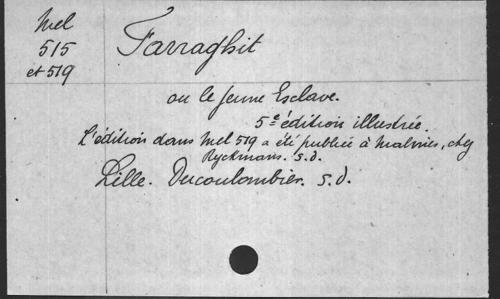 Mel
515
et 519
Farraghit
ou le Jeune Esclave.
5e édition illustrée.
L'édition dans Mel 519 a été publiée à Malines, chez
Ryckmans. s.d.
Lille. Ducoulombier. s.d.